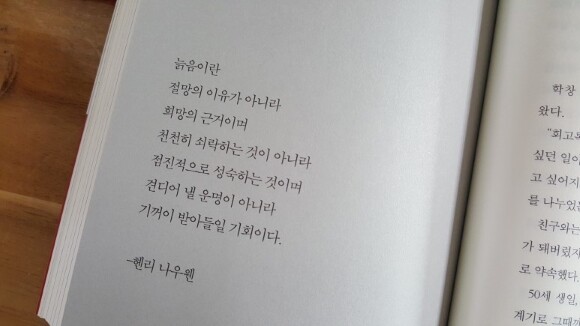 늙음이란
절망의 이유가 아니라
희망의 근거이며
천천히 쇠락하는 것이 아니라
점진적으로 성숙하는 것이며
견디어 낼 운명이 아니라
기꺼이 받아들일 기회이다.
-헨리 나우웬
학창
왔다.
"회고록
싶던 일이
고 싶어지
를 나누었은
친구와는
가 돼버렸지
로 약속했다.
50세 생일,
계기로 그때까